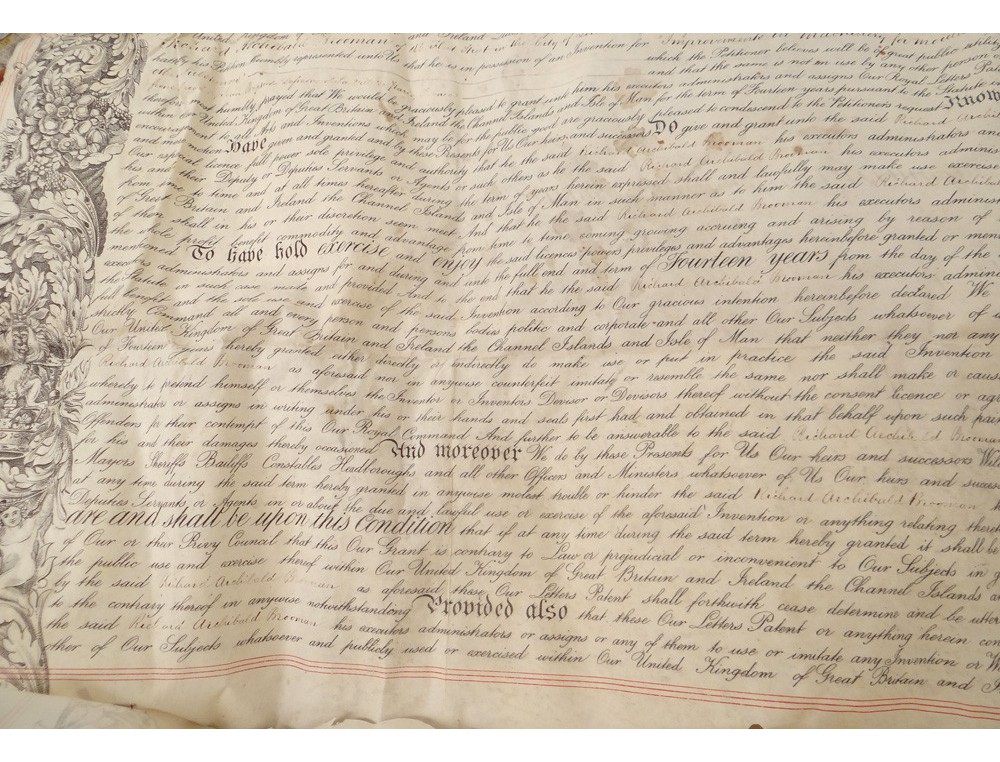 United Kingdom of and Ireland
Richard Archibald Brooman of in the City of Invention for Improvements in
hath by his Petition humbly represented unto Us that he is in possession of an which the Petitioner believes will be of great public utility
and that the same is not in use by any other person
therefore most humbly prayed that We would be graciously pleased to grant unto him his executors administrators and assigns Our Royal Letters Patent
within Our United Kingdom of Great Britain and Ireland the Channel Islands and Isle of Man for the term of Fourteen years pursuant to the Statutes
encouragement to all Arts and Inventions which may be for the public good are graciously pleased to condescend to the Petitioner's request Know
and mere motion Have given and granted and by these Presents for Us Our heirs and successors Do give and grant unto the said Richard Archibald
Our especial licence full power sole privilege and authority that he the said Richard Archibald Brooman his executors administrators and
his and their Deputy or Deputies Servants or Agents or such others as he the said Richard Archibald Brooman his executors administrators
from time to time and at all times hereafter during the term of years herein expressed shall and lawfully may make use exercise
of Great Britain and Ireland the Channel Islands and Isle of Man in such manner as to him the said Richard Archibald
of them shall in his or their discretion seem meet And that he the said Richard Archibald Brooman his executors
the whole profit benefit commodity and advantage from time to time coming growing accruing and arising by reason of
mentioned To have hold exercise and enjoy the said licences powers privileges and advantages hereinbefore granted or
executors administrators and assigns for and during and unto the full end and term of Fourteen years from the day of the
the Statute in such case made and provided And to the end that he the said Richard Archibald Brooman his executors
full benefit and the sole use and exercise of the said Invention according to Our gracious intention hereinbefore declared We
strictly Command all and every person and persons bodies politic and corporate and all other Our Subjects whatsoever of
Our United Kingdom of Great Britain and Ireland the Channel Islands and Isle of Man that neither they nor any
of Fourteen years hereby granted either directly or indirectly do make use or put in practice the said Invention
Richard Archibald Brooman as aforesaid nor in anywise counterfeit imitate or resemble the same nor shall make or cause
whereby to pretend himself or themselves the Inventor or Inventors Devisor or Devisors thereof without the consent licence or
administrators or assigns in writing under his or their hands and seals first had and obtained in that behalf upon such
Offenders for their contempt of this Our Royal Command And further to be answerable to the said Richard Archibald Brooman
for his and their damages thereby occasioned And moreover We do by these Presents for Us Our heirs and successors
Mayors Sheriffs Bailiffs Constables Headboroughs and all other Officers and Ministers whatsoever of Us Our heirs and
at any time during the said term hereby granted in anywise molest trouble or hinder the said Richard Archibald Brooman
Deputies Servants or Agents in or about the due and lawful use or exercise of the aforesaid Invention or anything relating
are and shall be upon this condition that if at any time during the said term hereby granted it shall be
of Our or their Privy Council that this Our Grant is contrary to Law or prejudicial or inconvenient to Our Subjects in
the public use and exercise thereof within Our United Kingdom of Great Britain and Ireland the Channel Islands
by the said Richard Archibald Brooman as aforesaid these Our Letters Patent shall forthwith cease determine and be
to the contrary thereof in anywise notwithstanding Provided also that these Our Letters Patent or anything herein
the said Richard Archibald Brooman his executors administrators or assigns or any of them to use or imitate any Invention or
other of Our Subjects whatsoever and publicly used or exercised within Our United Kingdom of Great Britain and